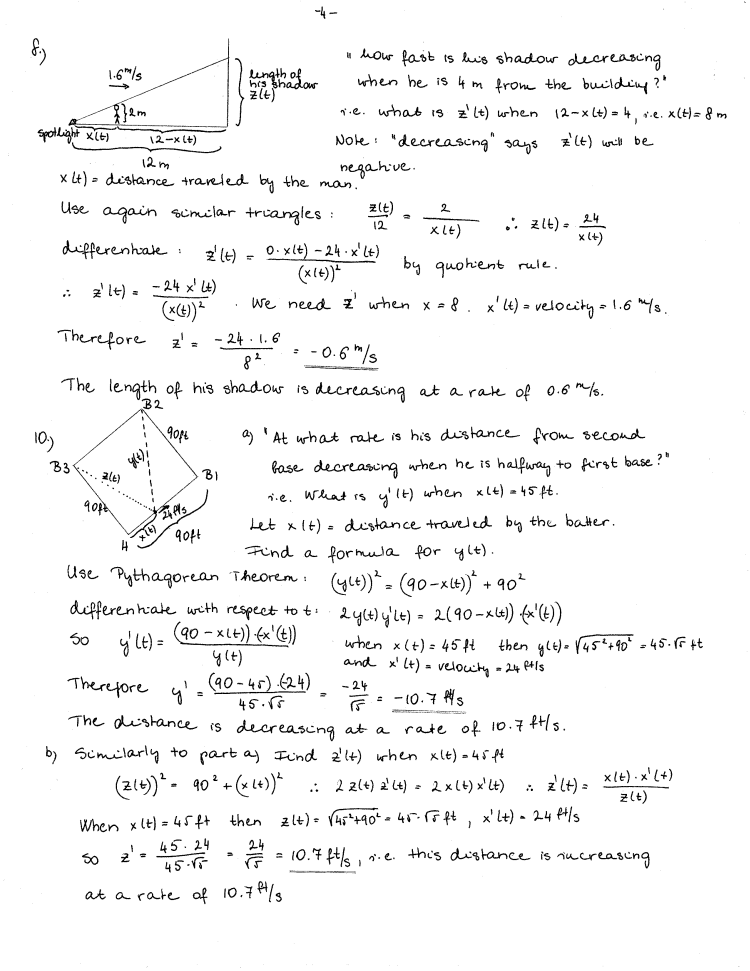 -4-
8.)
1.6 m/s
2m
spotlight x(t) 12-x(t)
12 m
length of
his shadow
z(t)
" how fast is his shadow decreasing
when he is 4 m from the building?"
i.e. what is z'(t) when 12-x(t) = 4, i.e. x(t) = 8 m
Note: "decreasing" says z'(t) will be
negative.
x(t) = distance traveled by the man.
Use again similar triangles: z(t)/12 = 2/x(t) ∴ z(t) = 24/x(t)
differentiate: z'(t) = (0·x(t) - 24·x'(t))/(x(t))² by quotient rule.
∴ z'(t) = -24 x'(t)/(x(t))². We need z' when x = 8. x'(t) = velocity = 1.6 m/s.
Therefore z' = -24·1.6/8² = -0.6 m/s
The length of his shadow is decreasing at a rate of 0.6 m/s.
10.)
B2
90ft
y(t)
B3
z(t)
B1
90ft
24 ft/s
x(t)
H
90ft
a) "At what rate is his distance from second
base decreasing when he is halfway to first base?"
i.e. What is y'(t) when x(t) = 45 ft.
Let x(t) = distance traveled by the batter.
Find a formula for y(t).
Use Pythagorean Theorem: (y(t))² = (90-x(t))² + 90²
differentiate with respect to t: 2y(t)y'(t) = 2(90-x(t))·(-x'(t))
So y'(t) = (90-x(t))·(-x'(t))/y(t) when x(t) = 45 ft then y(t) = √(45²+90²) = 45·√5 ft
and x'(t) = velocity = 24 ft/s
Therefore y' = (90-45)·(-24)/(45·√5) = -24/√5 = -10.7 ft/s
The distance is decreasing at a rate of 10.7 ft/s.
b) Similarly to part a) Find z'(t) when x(t) = 45 ft
(z(t))² = 90² + (x(t))² ∴ 2z(t)z'(t) = 2x(t)x'(t) ∴ z'(t) = x(t)·x'(t)/z(t)
When x(t) = 45 ft then z(t) = √(45²+90²) = 45·√5 ft, x'(t) = 24 ft/s
so z' = 45·24/(45·√5) = 24/√5 = 10.7 ft/s, i.e. this distance is increasing
at a rate of 10.7 ft/s